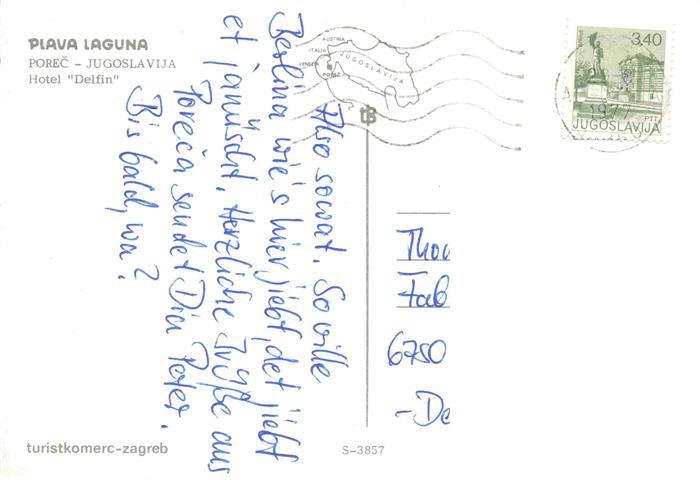 PLAVA LAGUNA
POREČ – JUGOSLAVIJA
Hotel "Delfin"
AUSTRIA
ITALIA
JUGOSLAVIJA
VENEZIA
POREČ
3.40
1977
PTT
JUGOSLAVIJA
Also sowat. So ville
Berlina wie's hier jiebt, det jiebt
et ja nüscht. Herzliche Jrüße aus
Poreča sendet Dia Peter.
Bis bald, wa?
6750
-De
turistkomerc-zagreb
S-3857